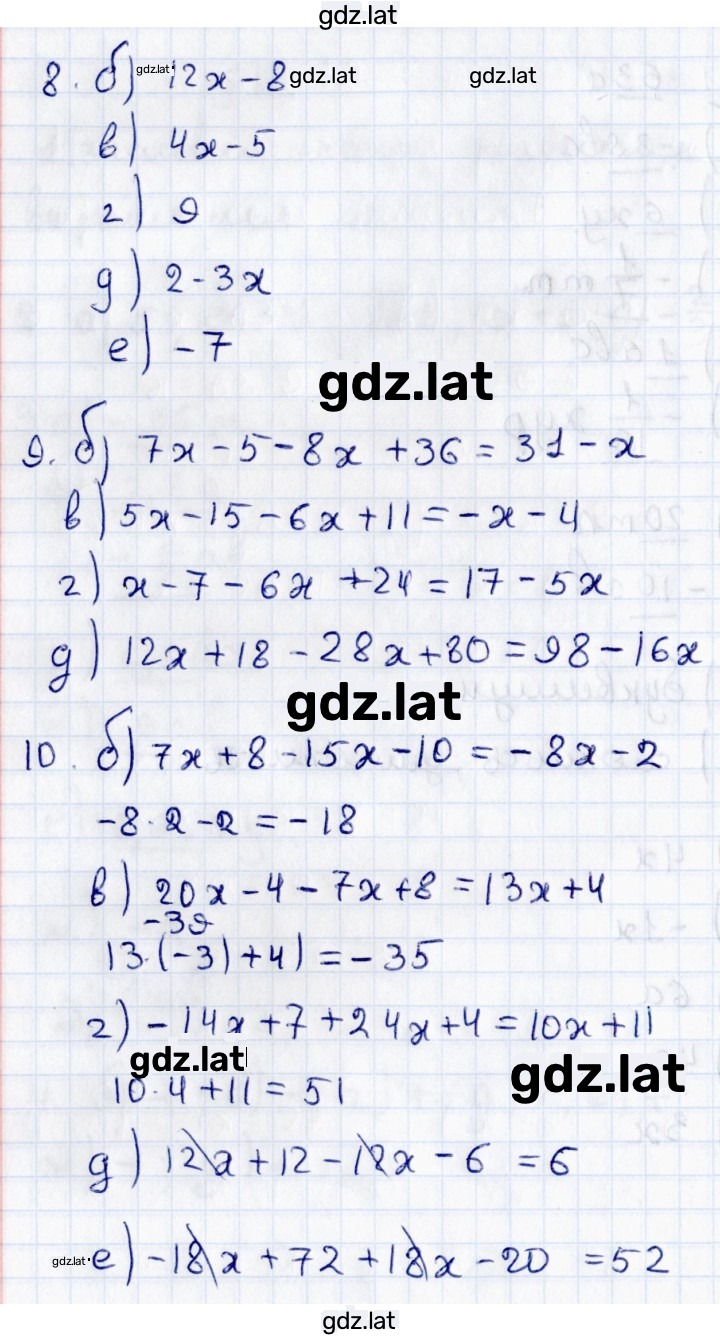 gdz.lat
8. б) gdz.lat 12x - 8 gdz.lat gdz.lat
в) 4x - 5
г) 9
д) 2 - 3x
е) - 7
gdz.lat
9. б) 7x - 5 - 8x + 36 = 31 - x
в) 5x - 15 - 6x + 11 = - x - 4
г) x - 7 - 6x + 24 = 17 - 5x
д) 12x + 18 - 28x + 80 = 98 - 16x
gdz.lat
10. б) 7x + 8 - 15x - 10 = - 8x - 2
-8 · 2 - 2 = - 18
в) 20x - 4 - 7x + 8 = 13x + 4
-39
13·(-3) + 4) = - 35
г) - 14x + 7 + 24x + 4 = 10x + 11
gdz.lat gdz.lat
10 · 4 + 11 = 51
д) 12x + 12 - 12x - 6 = 6
gdz.lat е) - 18x + 72 + 18x - 20 = 52
gdz.lat